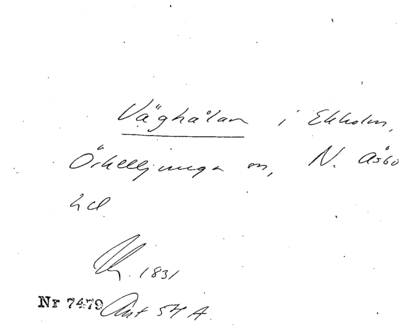 Väghålan i Ekholm,
Örkelljunga sn, N. Åsbo
hd
1831
Nr 7479 Ant 54 A.